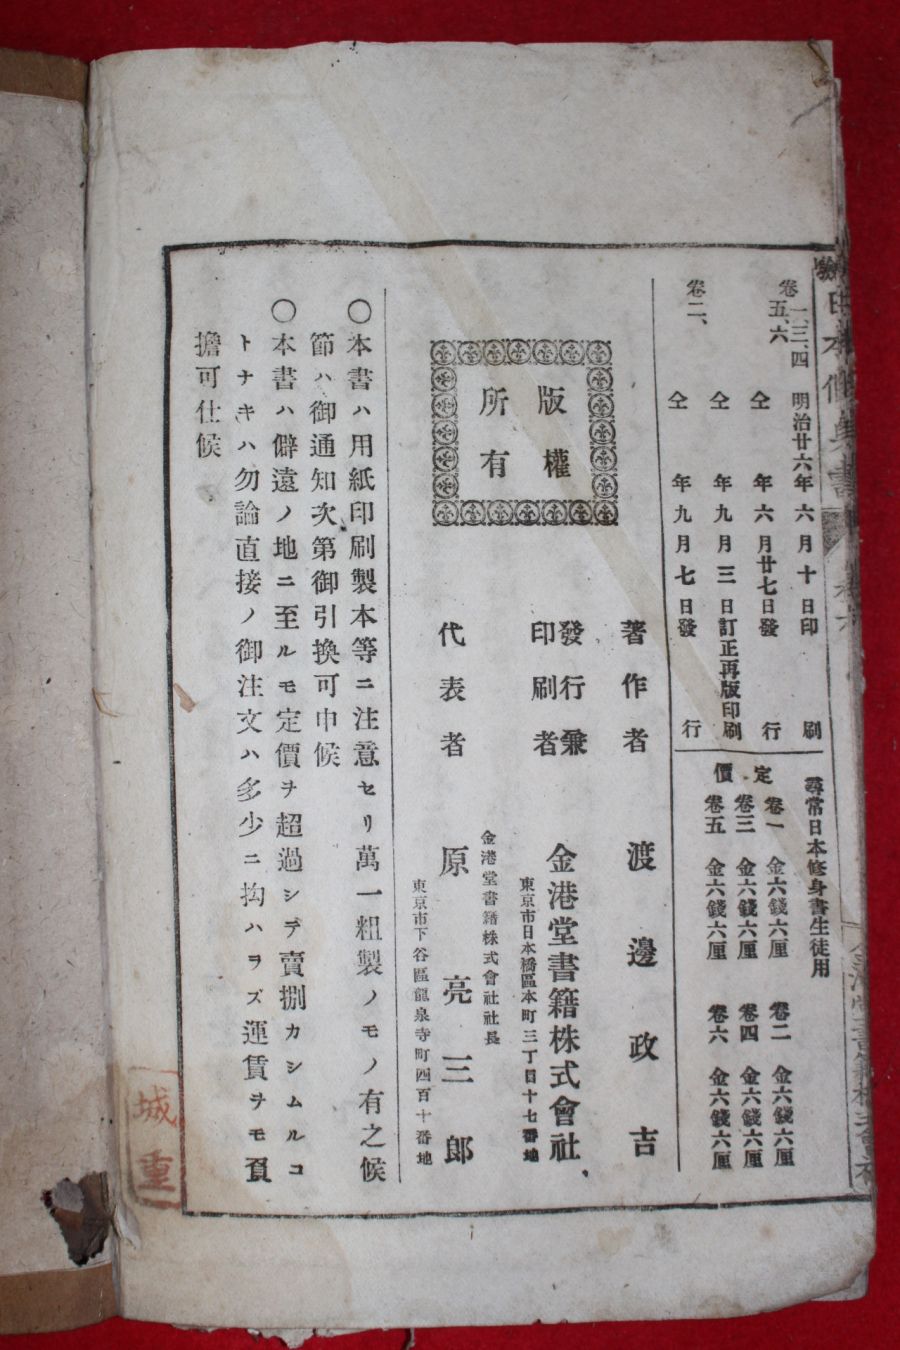 卷一、三、四 明治廿六年六月十日印刷
卷五、六 仝年六月廿七日發行
仝年九月三日訂正再版印刷
卷二、 仝年九月七日發行
尋常日本修身書生徒用
定價
卷一 金六錢六厘 卷二 金六錢六厘
卷三 金六錢六厘 卷四 金六錢六厘
卷五 金六錢六厘 卷六 金六錢六厘
版權
所有
著作者 渡邊政吉
發行兼
印刷者
金港堂書籍株式會社
東京市日本橋區本町三丁目十七番地
金港堂書籍株式會社社長
代表者 原亮三郎
東京市下谷區龍泉寺町四百十番地
〇本書ハ用紙印刷製本等ニ注意セリ萬一粗製ノモノ有之候
節ハ御通知次第御引換可申候
〇本書ハ僻遠ノ地ニ至ルモ定價ヲ超過シテ賣捌カシムルコ
トナキハ勿論直接ノ御注文ハ多少ニ拘ハラズ運賃ヲモ負
擔可仕候
城重